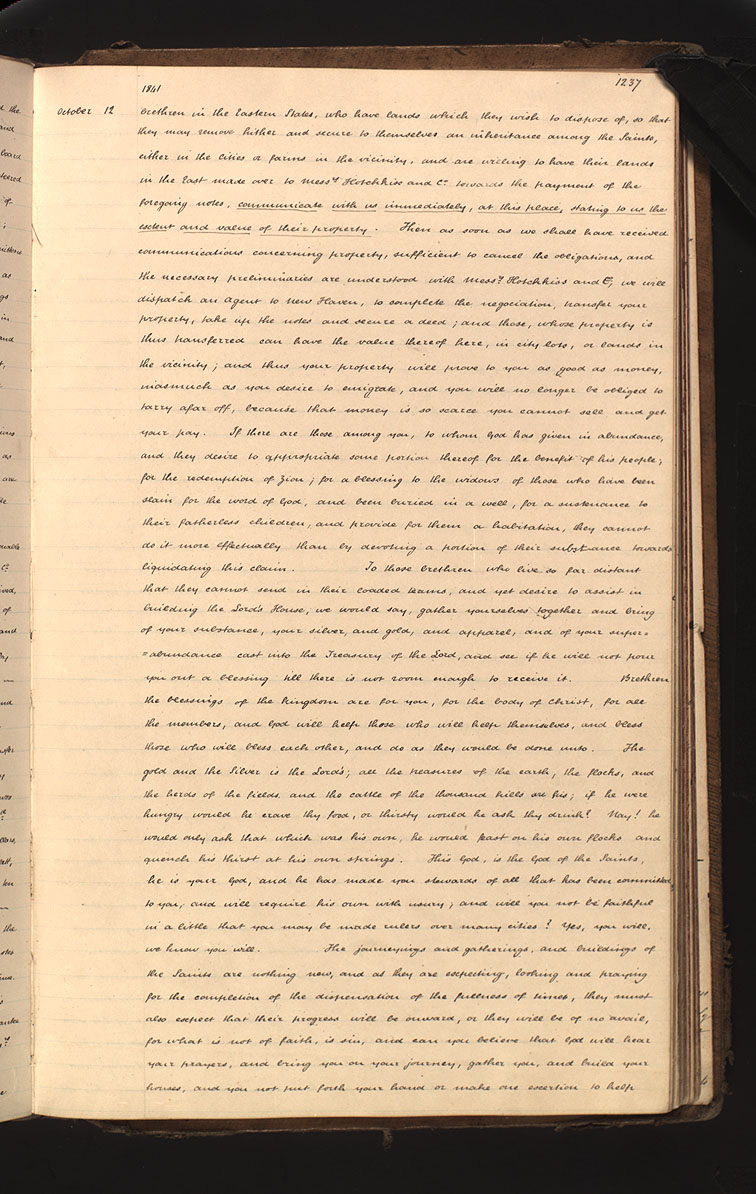 1841
1237
October 12
brethren in the Eastern States, who have lands which they wish to dispose of, so that
they may remove hither and secure to themselves an inheritance among the Saints,
either in the cities or farms in the vicinity, and are willing to have their lands
in the East made over to Messrs Hotchkiss and Co towards the payment of the
foregoing notes, communicate with us immediately, at this place, stating to us the
extent and value of their property. Then as soon as we shall have received
communications concerning property, sufficient to cancel the obligations, and
the necessary preliminaries are understood with Messrs Hotchkiss and Co, we will
dispatch an agent to New Haven, to complete the negociation, transfer your
property, take up the notes and secure a deed; and those, whose property is
thus transferred can have the value thereof here, in city lots, or lands in
the vicinity; and thus your property will prove to you as good as money,
inasmuch as you desire to emigrate, and you will no longer be obliged to
tarry afar off, because that money is so scarce you cannot sell and get
your pay. If there are those among you, to whom God has given in abundance,
and they desire to appropriate some portion thereof for the benefit of his people;
for the redemption of Zion; for a blessing to the widows of those who have been
slain for the word of God, and been buried in a well, for a sustenance to
their fatherless children, and provide for them a habitation, they cannot
do it more effectually than by devoting a portion of their substance towards
liquidating this claim. To those brethren who live so far distant
that they cannot send in their loaded teams, and yet desire to assist in
building the Lord's House, we would say, gather yourselves together and bring
of your substance, your silver, and gold, and apparel, and of your super=
=abundance cast into the Treasury of the Lord, and see if he will not pour
you out a blessing till there is not room enough to receive it. Brethren
the blessings of the kingdom are for you, for the body of Christ, for all
the members, and God will help those who will help themselves, and bless
those who will bless each other, and do as they would be done unto. The
gold and the Silver is the Lord's; all the treasures of the earth, the flocks, and
the herds of the fields and the cattle of the thousand hills are his; if he were
hungry would he crave thy food, or thirsty would he ask thy drink? Nay! he
would only ask that which was his own, he would feast on his own flocks and
quench his thirst at his own springs. This God, is the God of the Saints,
he is your God, and he has made you stewards of all that has been committed
to you, and will require his own with usury; and will you not be faithful
in a little that you may be made rulers over many cities? Yes, you will,
we know you will. The journeyings and gatherings, and buildings of
the Saints are nothing new, and as they are expecting, looking and praying
for the completion of the dispensation of the fullness of times, they must
also expect that their progress will be onward, or they will be of no avail,
for what is not of faith, is sin, and can you believe that God will hear
your prayers, and bring you on your journey, gather you, and build your
houses, and you not put forth your hand or make one exertion to help